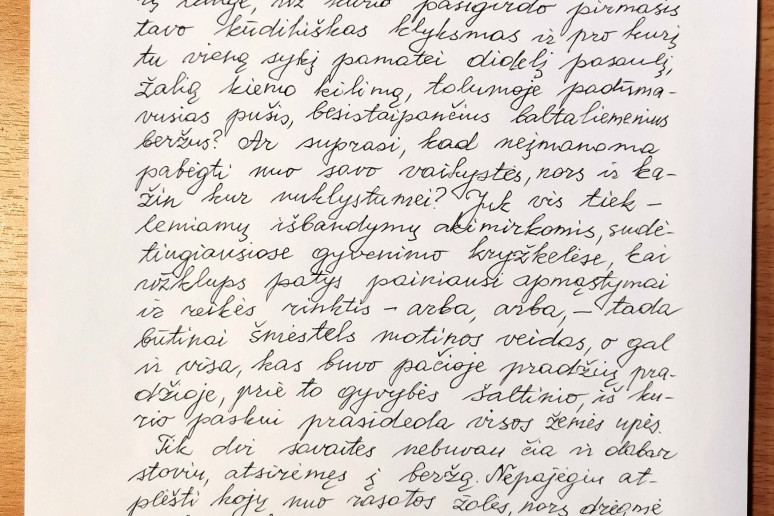 žemėje, iš kurio pasigirdo pirmasis
tavo kūdikiškas klyksmas ir pro kurį
tu vieną sykį pamatei didelį pasaulį,
žalią kiemo kilimą, tolumoje padūma-
vusias pušis, besistaipančius baltaliemenius
beržus? Ar suprasi, kad neįmanoma
pabėgti nuo savo vaikystės, nors ir ka-
žin kur nuklystumei? Juk vis tiek –
lemiamų išbandymų akimirkomis, sudė-
tingiausiose gyvenimo kryžkelėse, kai
užklups patys painiausi apmąstymai
ir reikės rinktis – arba, arba, – tada
būtinai šmėstels motinos veidas, o gal
ir visa, kas buvo pačioje pradžių pra-
džioje, prie to gyvybės šaltinio, iš ku-
rio paskui prasideda visos žemės upės.
Tik dvi savaites nebuvau čia ir dabar
stoviu, atsirėmęs į beržą. Nepajėgiu at-
plėšti kojų nuo rasotos žolės, nors drėgmė